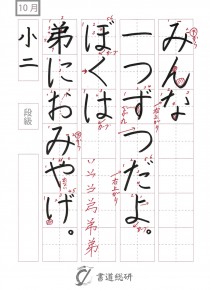 10月
小二
段級
みんな
一つずつだよ。
ぼくは
弟におみやげ。
右上がり
書道総研